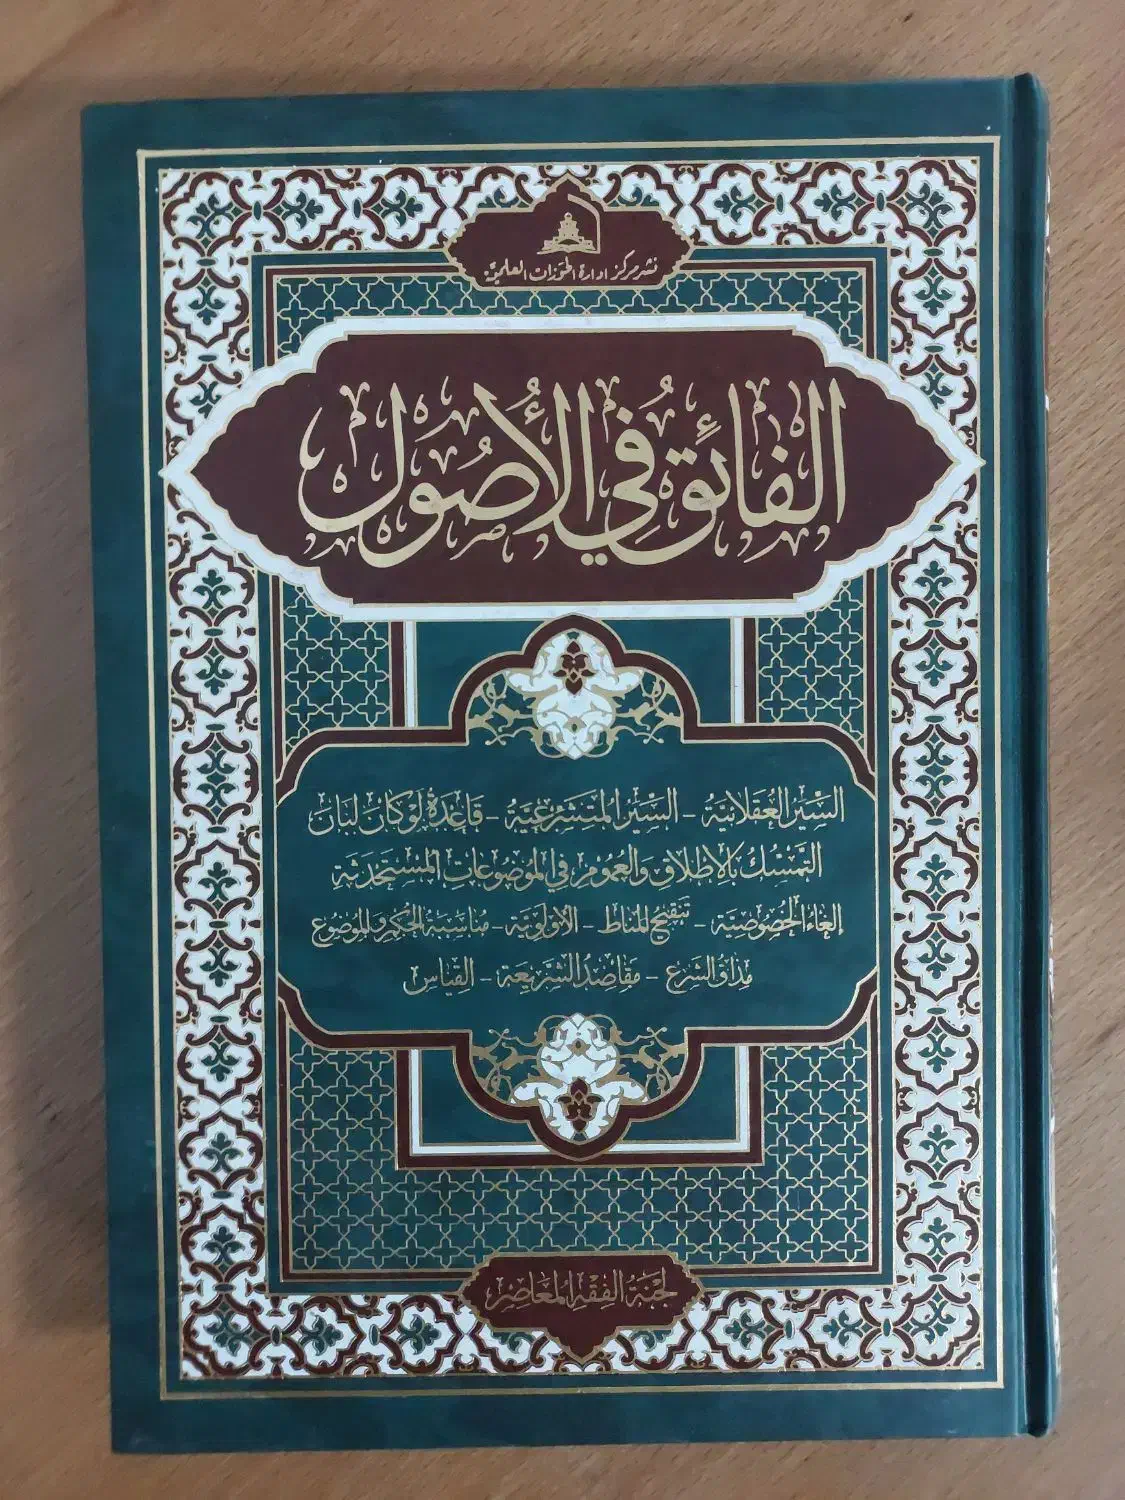 نشر مركز ادارة الحوزات العلمية
الفائق في الأصول
السير العقلانية - السير المتشرعية - قاعدة لو كان لبان
التمسك بالإطلاق والعموم في الموضوعات المستحدثة
إلغاء الخصوصية - تنقيح المناط - الأولوية - مناسبة الحكم والموضوع
مذاق الشرع - مقاصد الشريعة - القياس
لجنة الفقه المعاصر